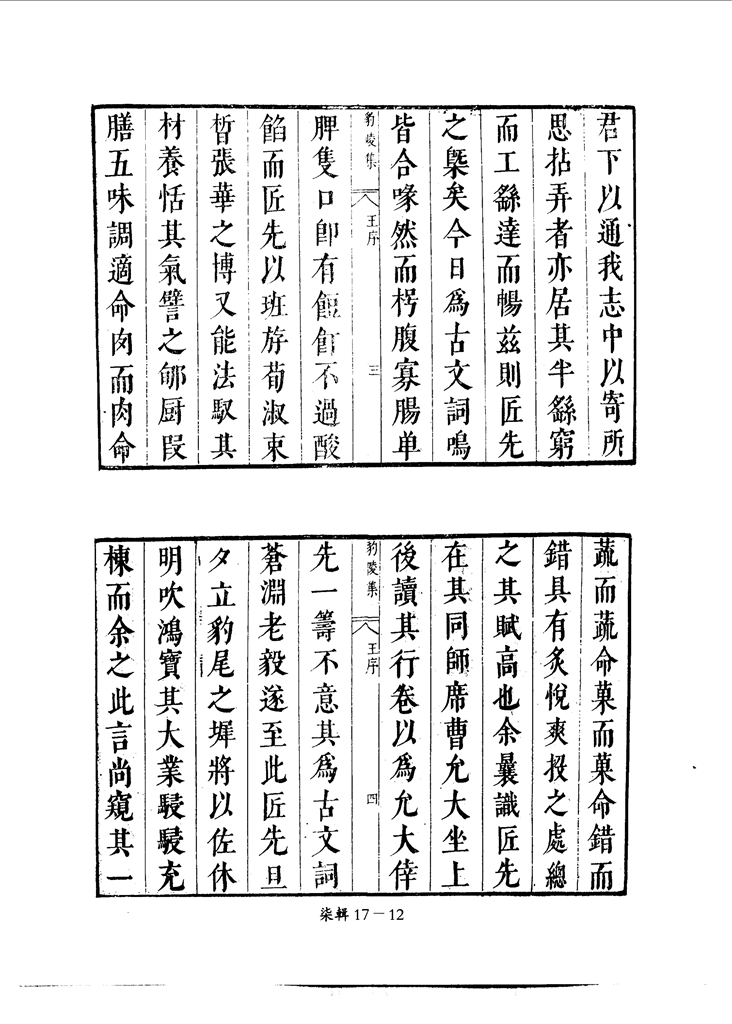 君下以通我志中以寄所
思拈弄者亦居其半繇窮
而工繇達而暢兹則匠先
之槩矣今日為古文詞鳴
皆合喙然而枵腹寡腸单
豹陵集 王序 三
脾隻口卽有餖飣不過酸
餡而匠先以班斿荀淑束
晳張華之博又能法馭其
材養恬其氣譬之郇厨叚
膳五味調適命肉而肉命
蔬而蔬命菓而菓命錯而
錯具有炙悅爽投之處總
之其賦高也余曩識匠先
在其同師席曹允大坐上
後讀其行卷以為允大倅
豹陵集 王序 四
先一籌不意其為古文詞
蒼淵老毅遂至此匠先旦
夕立豹尾之墀將以佐休
明吹鴻寶其大業駸駸充
棟而余之此言尚窺其一
柒輯 17－12